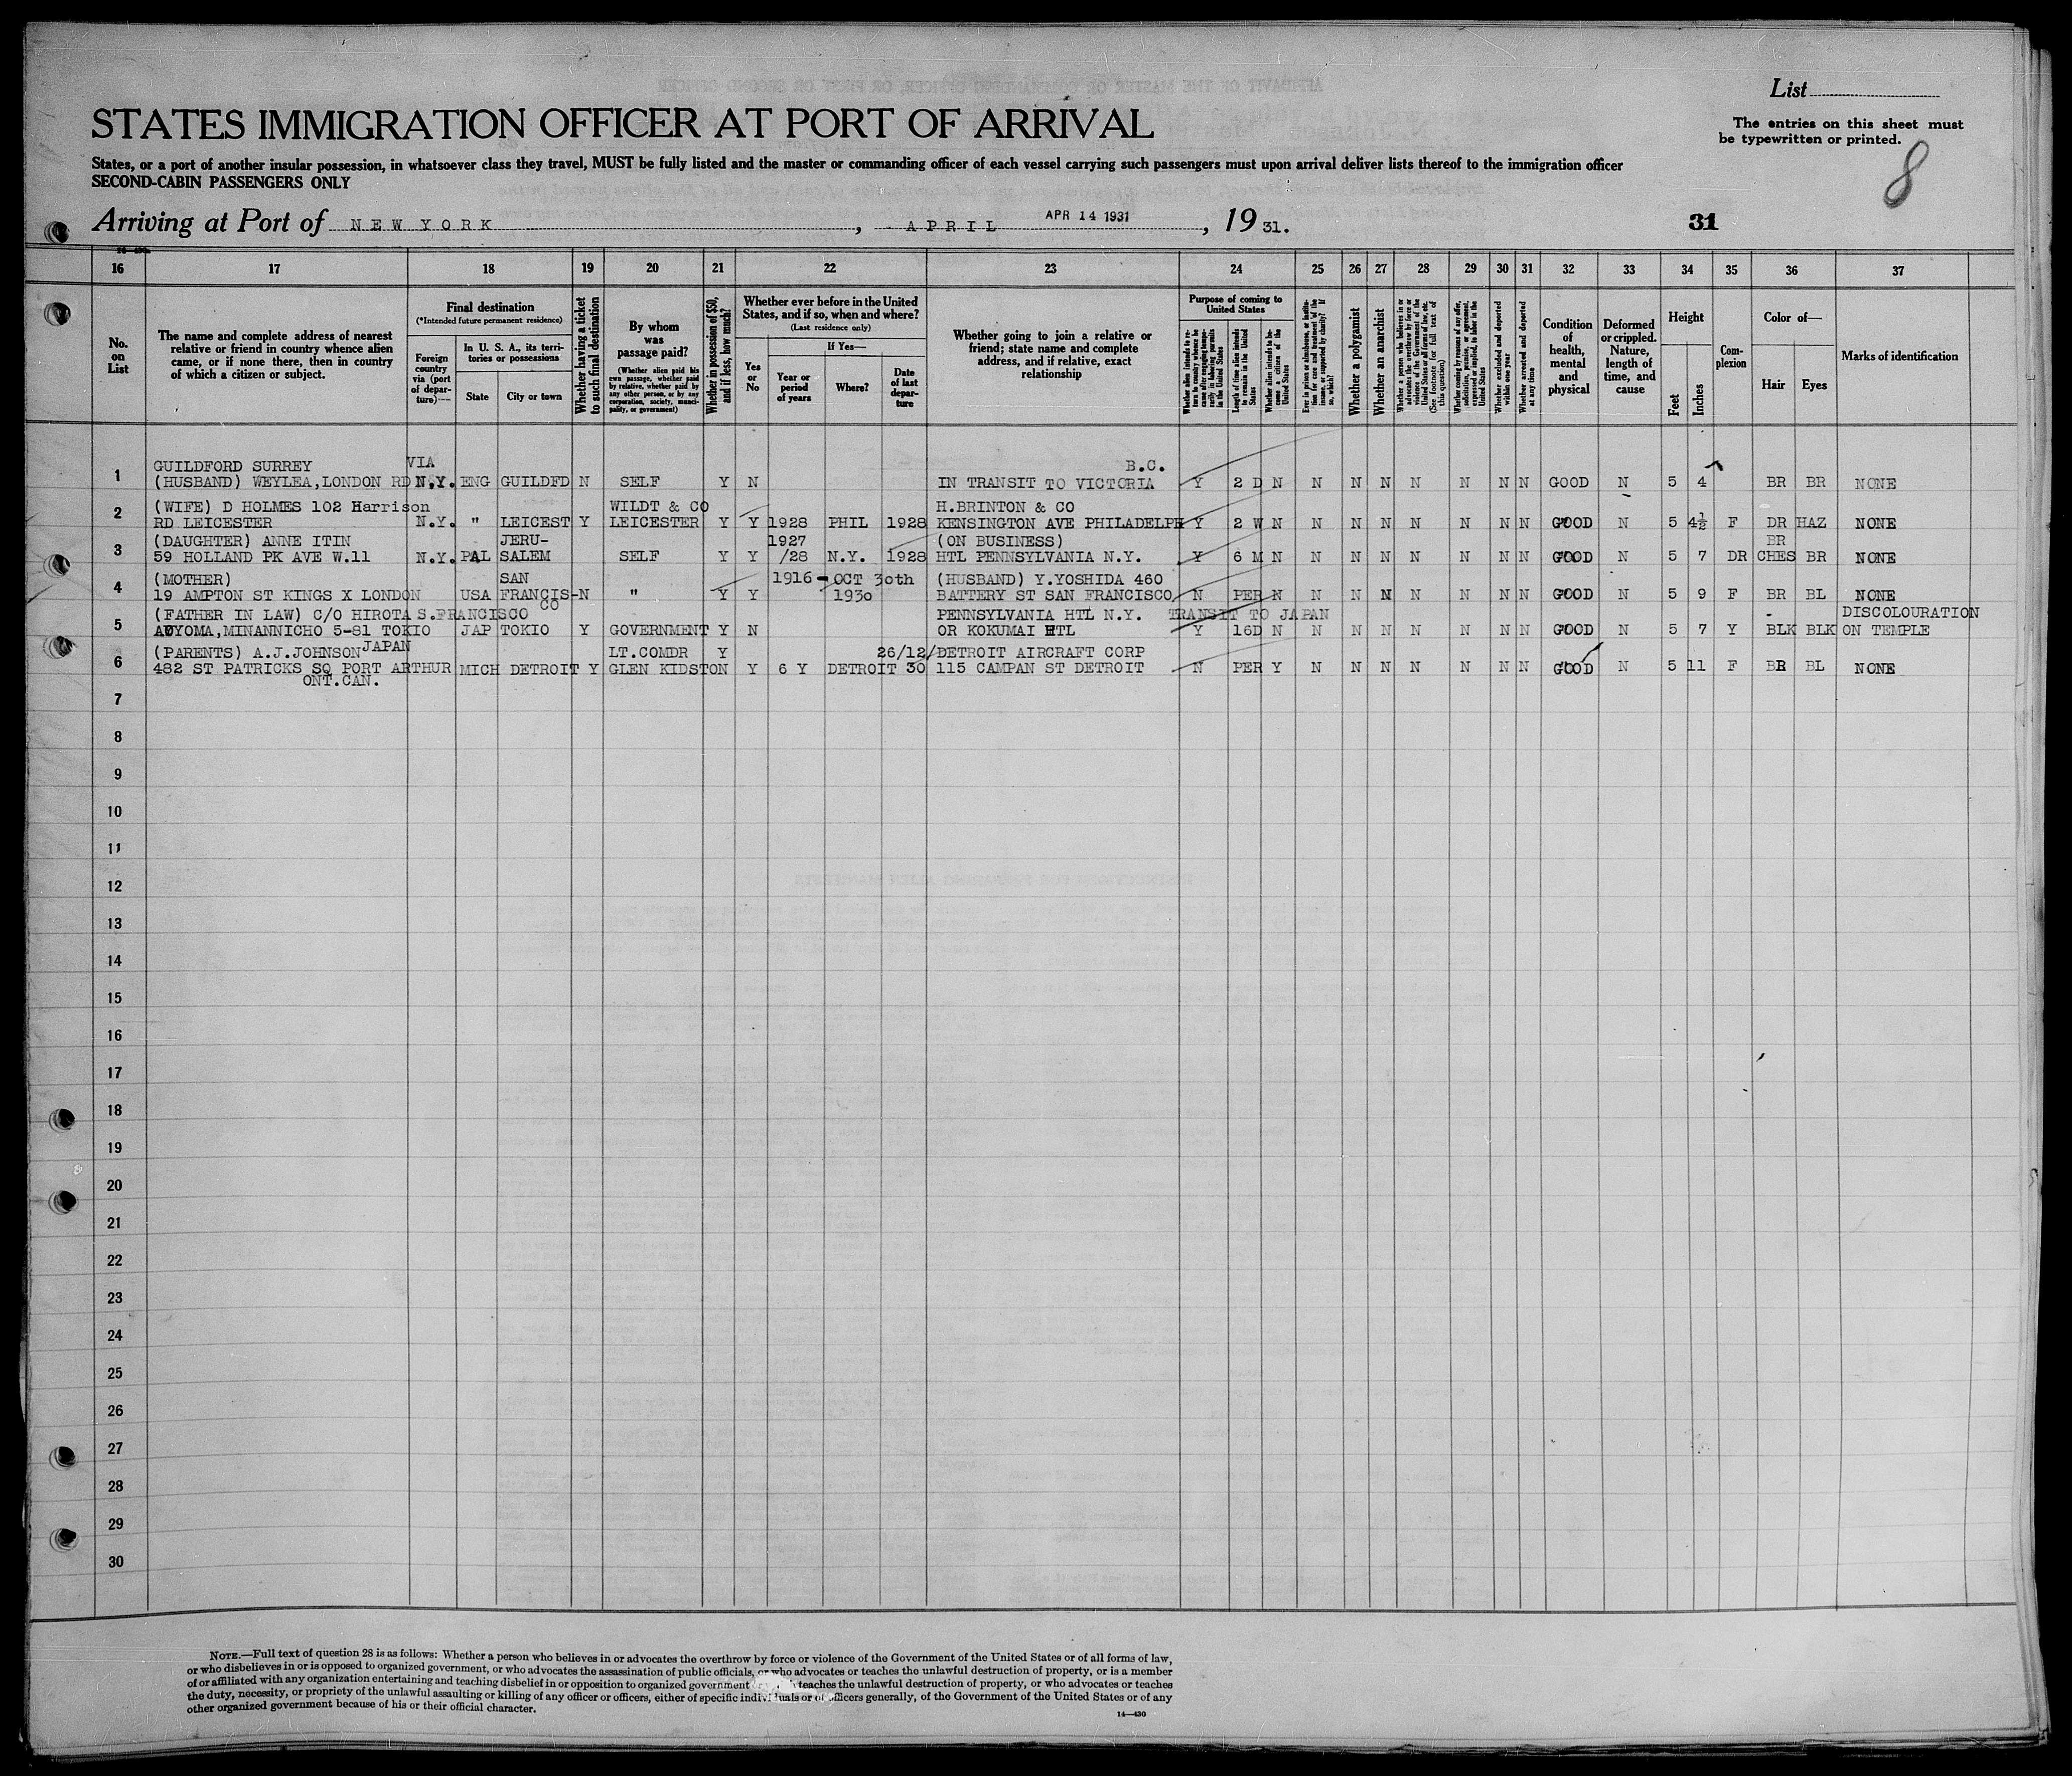 List
The entries on this sheet must
be typewritten or printed.
8
STATES IMMIGRATION OFFICER AT PORT OF ARRIVAL
States, or a port of another insular possession, in whatsoever class they travel, MUST be fully listed and the master or commanding officer of each vessel carrying such passengers must upon arrival deliver lists thereof to the immigration officer
SECOND-CABIN PASSENGERS ONLY
Arriving at Port of NEW YORK, APRIL APR 14 1931, 19 31. 31
16 17 18 19 20 21 22 23 24 25 26 27 28 29 30 31 32 33 34 35 36 37
No. on List
The name and complete address of nearest
relative or friend in country whence alien
came, or if none there, then in country
of which a citizen or subject.
Final destination
(*Intended future permanent residence)
Foreign country via (port of departure)—
In U. S. A., its territories or possessions
State
City or town
Whether having a ticket to such final destination
By whom was passage paid?
(Whether alien paid his own passage, whether paid by relative, whether paid by any other person, or by any corporation, society, municipality, or government)
Whether in possession of $50, and if less, how much?
Whether ever before in the United
States, and if so, when and where?
(Last residence only)
Yes or No
If Yes—
Year or period of years
Where?
Date of last departure
Whether going to join a relative or
friend; state name and complete
address, and if relative, exact
relationship
Purpose of coming to United States
Length of time alien intends to remain in the United States
Whether alien intends to become a citizen of the United States
Whether a polygamist
Whether an anarchist
Whether excluded and deported within one year
Whether arrested and deported at any time
Condition of health, mental and physical
Deformed or crippled. Nature, length of time, and cause
Height
Feet
Inches
Complexion
Color of—
Hair
Eyes
Marks of identification
GUILDFORD SURREY VIA B.C.
1 (HUSBAND) WEYLEA,LONDON RD N.Y. ENG GUILDFD N SELF Y N IN TRANSIT TO VICTORIA Y 2 D N N N N N N N N GOOD N 5 4 BR BR NONE
(WIFE) D HOLMES 102 Harrison WILDT & CO H.BRINTON & CO
2 RD LEICESTER N.Y. " LEICEST Y LEICESTER Y Y 1928 PHIL 1928 KENSINGTON AVE PHILADELPH Y 2 W N N N N N N N N GOOD N 5 4½ F DR HAZ NONE
(DAUGHTER) ANNE ITIN JERU- 1927 (ON BUSINESS) BR
3 59 HOLLAND PK AVE W.11 N.Y. PAL SALEM SELF Y Y /28 N.Y. 1928 HTL PENNSYLVANIA N.Y. Y 6 M N N N N N N N N GOOD N 5 7 DR CHES BR NONE
(MOTHER) SAN 1916 - OCT 30th (HUSBAND) Y.YOSHIDA 460
4 19 AMPTON ST KINGS X LONDON USA FRANCIS- N " Y Y 1930 BATTERY ST SAN FRANCISCO N PER N N N N N N N N GOOD N 5 9 F BR BL NONE
CO
(FATHER IN LAW) C/O HIROTA S.FRANCISCO PENNSYLVANIA HTL N.Y. TRANSIT TO JAPAN DISCOLOURATION
5 AOYOMA,MINANNICHO 5-81 TOKIO JAP TOKIO Y GOVERNMENT Y N OR KOKUMAI HTL Y 16D N N N N N N N N GOOD N 5 7 Y BLK BLK ON TEMPLE
JAPAN
(PARENTS) A.J.JOHNSON LT.COMDR Y 26/12/ DETROIT AIRCRAFT CORP
6 482 ST PATRICKS SQ PORT ARTHUR MICH DETROIT Y GLEN KIDSTON Y 6 Y DETROIT 30 115 CAMPAN ST DETROIT N PER Y N N N N N N N GOOD N 5 11 F BR BL NONE
ONT.CAN.
7
8
9
10
11
12
13
14
15
16
17
18
19
20
21
22
23
24
25
26
27
28
29
30
NOTE.—Full text of question 28 is as follows: Whether a person who believes in or advocates the overthrow by force or violence of the Government of the United States or of all forms of law,
or who disbelieves in or is opposed to organized government, or who advocates the assassination of public officials, or who advocates or teaches the unlawful destruction of property, or is a member
of or affiliated with any organization entertaining and teaching disbelief in or opposition to organized government teaches the unlawful destruction of property, or who advocates or teaches
the duty, necessity, or propriety of the unlawful assaulting or killing of any officer or officers, either of specific individuals or of officers generally, of the Government of the United States or of any
other organized government because of his or their official character.
14—430